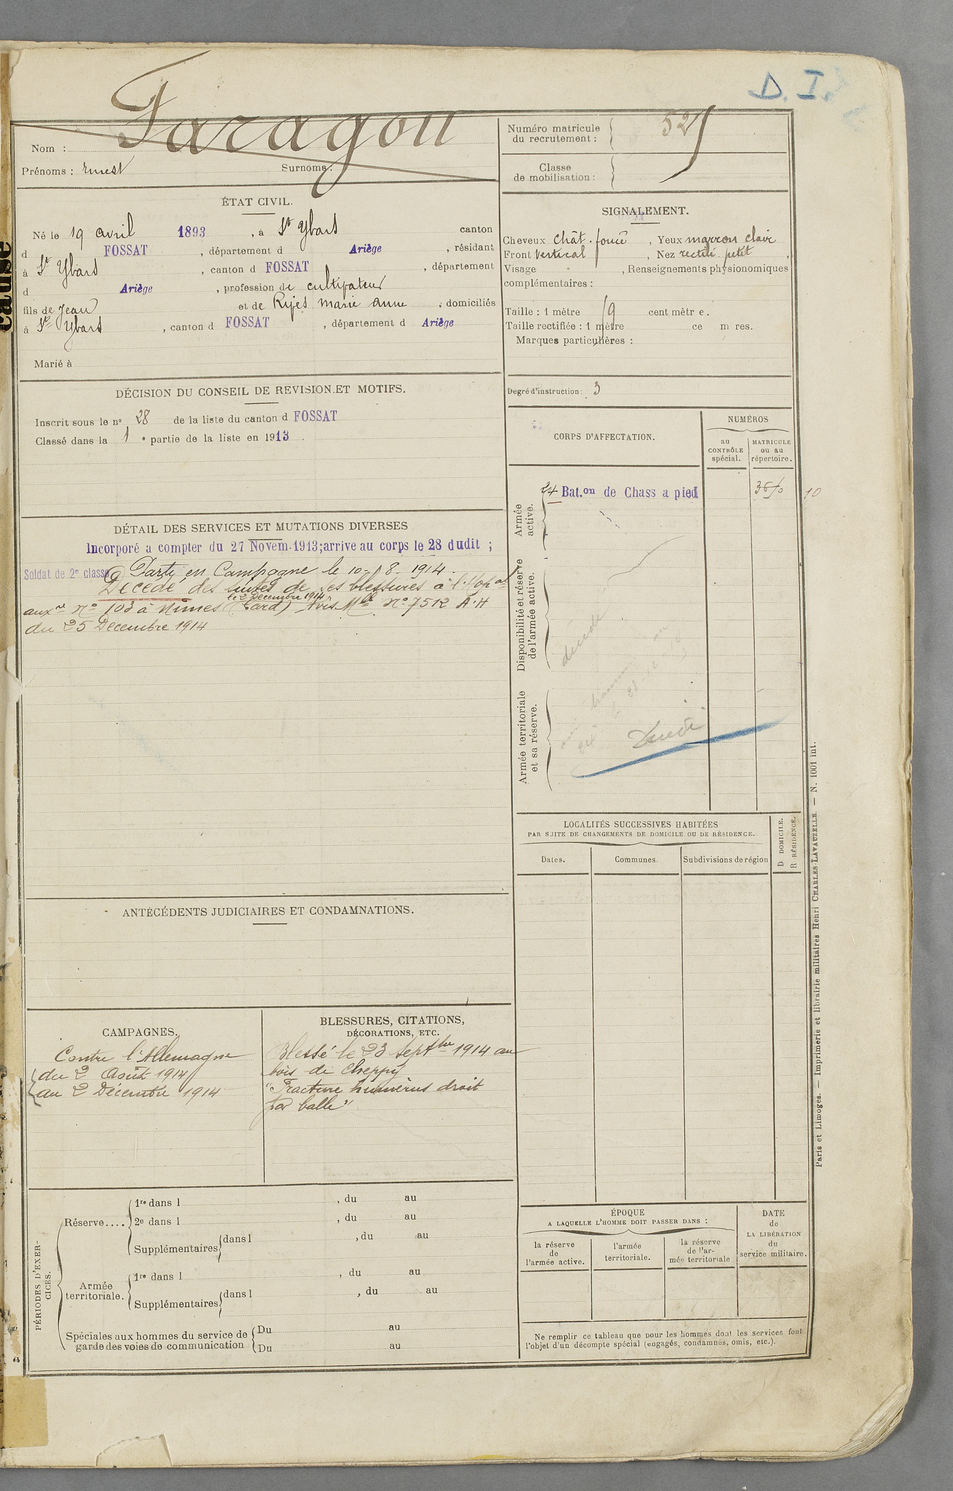 D. I.
Faragou
Nom :
Prénoms : Ernest Surnoms :
Numéro matricule du recrutement : 525
Classe de mobilisation :
ÉTAT CIVIL.
Né le 19 avril 1893, à St Ybars canton
d FOSSAT, département d Ariège, résidant
à St Ybars, canton d FOSSAT, département
d Ariège, profession de cultivateur
fils de Jean et de Rijes marie anne, domiciliés
à St Ybars, canton d FOSSAT, département d Ariège
Marié à
SIGNALEMENT.
Cheveux chât. foncé, Yeux marron clair
Front vertical, Nez rectili petit,
Visage , Renseignements physionomiques
complémentaires :
Taille : 1 mètre 69 centimètres.
Taille rectifiée : 1 mètre ce m res.
Marques particulières :
Degré d'instruction : 3
DÉCISION DU CONSEIL DE REVISION ET MOTIFS.
Inscrit sous le n° 28 de la liste du canton d FOSSAT
Classé dans la 1 e partie de la liste en 1913.
CORPS D'AFFECTATION.
NUMÉROS
au CONTRÔLE spécial.
MATRICULE ou au répertoire.
Armée active.
24 Bat.on de Chass a pied
10
Disponibilité et réserve de l'armée active.
décédé
Armée territoriale et sa réserve.
DÉTAIL DES SERVICES ET MUTATIONS DIVERSES
Incorporé a compter du 27 Novem. 1913; arrive au corps le 28 dudit ;
Soldat de 2e classe Parti en Campagne le 10-8-1914.
Décédé des suites de ses blessures à l'hopal
le 2 Décembre 1914
auxre N° 103 à Nimes (Gard) Avis Mel N° 7512 A.H
du 25 Décembre 1914
LOCALITÉS SUCCESSIVES HABITÉES
PAR SUITE DE CHANGEMENTS DE DOMICILE OU DE RÉSIDENCE.
Dates. Communes. Subdivisions de région
D DOMICILE.
R RÉSIDENCE.
ANTÉCÉDENTS JUDICIAIRES ET CONDAMNATIONS.
CAMPAGNES.
Contre l'Allemagne
du 2 Août 1914
au 2 Décembre 1914
BLESSURES, CITATIONS,
DÉCORATIONS, ETC.
Blessé le 23 Septbre 1914 au
bois de Cheppy
"Fracture humérus droit
par balle"
PÉRIODES D'EXERCICES.
Réserve....
1re dans l , du au
2e dans l , du au
Supplémentaires dans l , du au
Armée territoriale.
1re dans l , du au
Supplémentaires dans l , du au
Spéciales aux hommes du service de garde des voies de communication
Du au
Du au
ÉPOQUE
A LAQUELLE L'HOMME DOIT PASSER DANS :
la réserve de l'armée active.
l'armée territoriale.
la réserve de l'armée territoriale
DATE de LA LIBÉRATION du service militaire.
Ne remplir ce tableau que pour les hommes dont les services font
l'objet d'un décompte spécial (engagés, condamnés, omis, etc.).
Paris et Limoges. — Imprimerie et librairie militaires Henri CHARLES-LAVAUZELLE. — N. 1001 int.